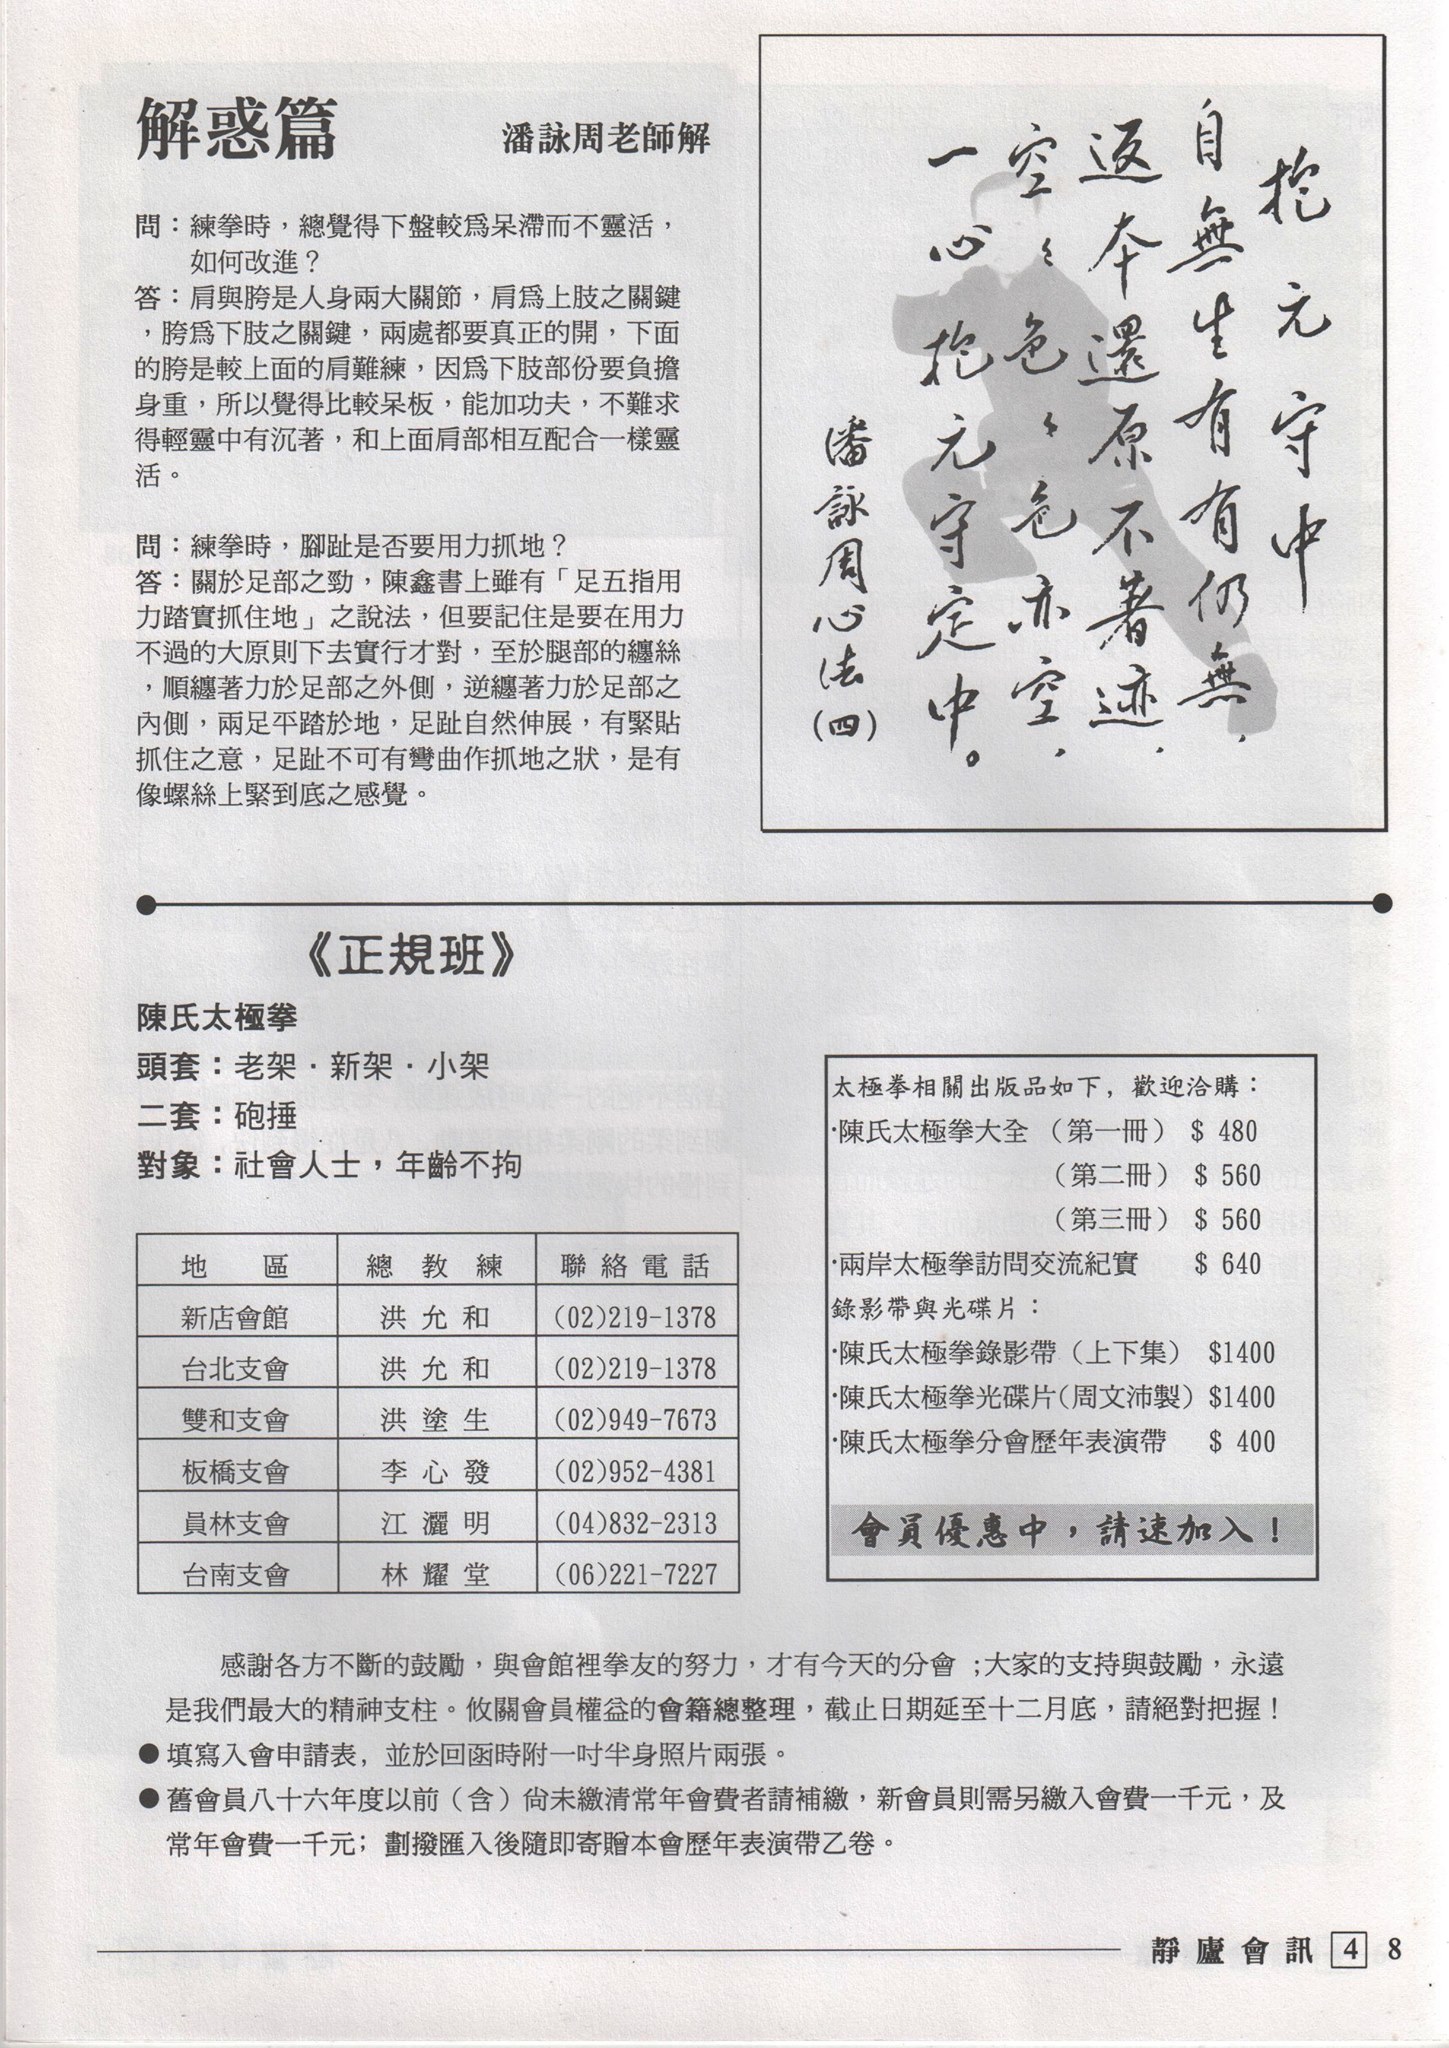 解惑篇
潘詠周老師解
問：練拳時，總覺得下盤較為呆滯而不靈活，
如何改進？
答：肩與胯是人身兩大關節，肩為上肢之關鍵
，胯為下肢之關鍵，兩處都要真正的開，下面
的胯是較上面的肩難練，因為下肢部份要負擔
身重，所以覺得比較呆板，能加功夫，不難求
得輕靈中有沉著，和上面肩部相互配合一樣靈
活。
問：練拳時，腳趾是否要用力抓地？
答：關於足部之勁，陳鑫書上雖有「足五指用
力踏實抓住地」之說法，但要記住是要在用力
不過的大原則下去實行才對，至於腿部的纏絲
，順纏著力於足部之外側，逆纏著力於足部之
內側，兩足平踏於地，足趾自然伸展，有緊貼
抓住之意，足趾不可有彎曲作抓地之狀，是有
像螺絲上緊到底之感覺。
抱元守中
自無生有有仍無，
返本還原不著迹，
空々色々色亦空，
一心抱元守定中。
潘詠周心法(四)
《正規班》
陳氏太極拳
頭套：老架．新架．小架
二套：砲捶
對象：社會人士，年齡不拘
地 區 總教練 聯絡電話
新店會館 洪允和 (02)219-1378
台北支會 洪允和 (02)219-1378
雙和支會 洪塗生 (02)949-7673
板橋支會 李心發 (02)952-4381
員林支會 江灑明 (04)832-2313
台南支會 林耀堂 (06)221-7227
太極拳相關出版品如下，歡迎洽購：
·陳氏太極拳大全（第一冊） $ 480
（第二冊） $ 560
（第三冊） $ 560
·兩岸太極拳訪問交流紀實 $ 640
錄影帶與光碟片：
·陳氏太極拳錄影帶（上下集） $1400
·陳氏太極拳光碟片(周文沛製) $1400
·陳氏太極拳分會歷年表演帶 $ 400
會員優惠中，請速加入！
感謝各方不斷的鼓勵，與會館裡拳友的努力，才有今天的分會；大家的支持與鼓勵，永遠
是我們最大的精神支柱。攸關會員權益的會籍總整理，截止日期延至十二月底，請絕對把握！
●填寫入會申請表，並於回函時附一吋半身照片兩張。
●舊會員八十六年度以前（含）尚未繳清常年會費者請補繳，新會員則需另繳入會費一千元，及
常年會費一千元；劃撥匯入後隨即寄贈本會歷年表演帶乙卷。
靜廬會訊 4 8